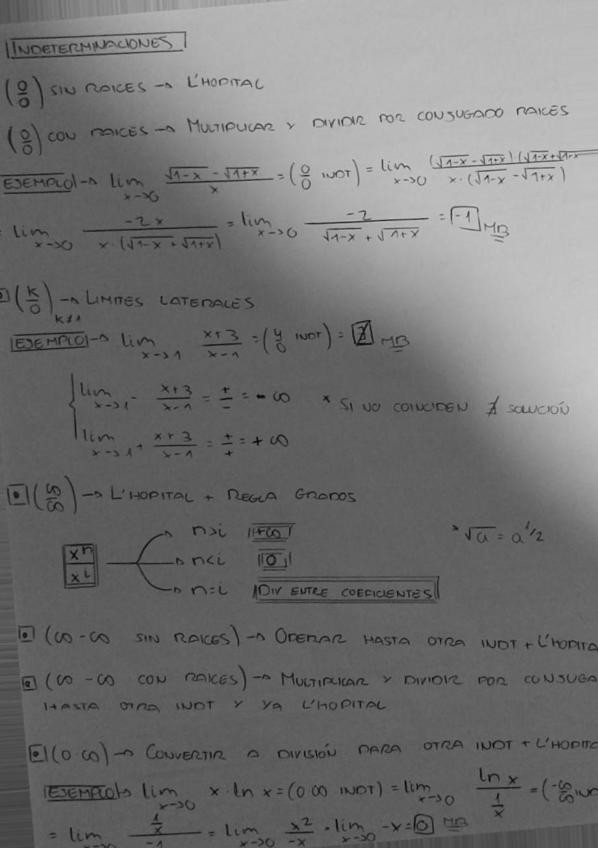 INDETERMINACIONES
(0/0) SIN RAICES → L'HOPITAL
(0/0) CON RAICES → MULTIPLICAR Y DIVIDIR POR CONJUGADO RAICES
EJEMPLO → lim x→0 (√1-x - √1+x)/x = (0/0 INDT) = lim x→0 (√1-x - √1+x)·(√1-x + √1+x)/x·(√1-x - √1+x)
= lim x→0 -2x/x·(√1-x + √1+x) = lim x→0 -2/(√1-x + √1+x) = -1 MB
(K/0) → LIMITES LATERALES
EJEMPLO → lim x→1 (x+3)/(x-1) = (4/0 INDT) = ∄ MB
lim x→1- (x+3)/(x-1) = +/- = -∞ * SI NO COINCIDEN ∄ SOLUCIÓN
lim x→1+ (x+3)/(x-1) = +/+ = +∞
(∞/∞) → L'HOPITAL + REGLA GRADOS
n>i +∞ * √a = a^1/2
x^n/x^i n<i 0
n=i DIV ENTRE COEFICIENTES
(∞-∞ SIN RAICES) → OPERAR HASTA OTRA INDT + L'HOPITA
(∞-∞ CON RAICES) → MULTIPLICAR Y DIVIDIR POR CONJUGA
HASTA OTRA INDT Y YA L'HOPITAL
(0·∞) → CONVERTIR A DIVISIÓN PARA OTRA INDT + L'HOPITA
EJEMPLO → lim x→0 x·ln x = (0·∞ INDT) = lim x→0 ln x/(1/x) = (-∞/∞ IND
= lim x→0 (1/x)/-1 = lim x→0 x²/-x = lim x→0 -x = 0 MB